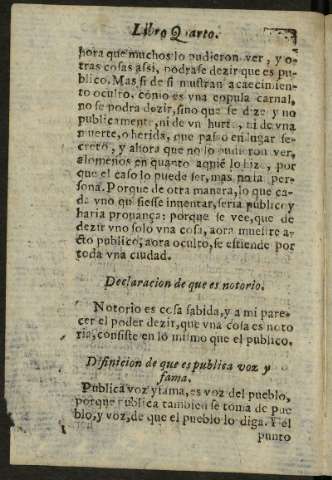 Libro Quarto.
hora que muchos lo pudieron ver, y o-
tras cosas assi, podrase dezir que es pu-
blico. Mas si de si mustran acaecimien-
to oculto, como es vna copula carnal,
no se podra dezir, sino que se dize y no
publicamente, ni de vn hurto, ni de vna
muerte, o herida, que passo en lugar se-
creto, y ahora que no lo pudieron ver,
alomenos en quanto a quiẽ lo hizo, por
que el caso lo puede ser, mas no la per-
sona. Porque de otra manera, lo que ca-
da vno quisiesse inuentar, seria publico y
haria prouança: porque se vee, que de
dezir vno solo vna cosa, aora muestre a-
cto publico, aora oculto, se estiende por
toda vna ciudad.
Declaracion de que es notorio.
Notorio es cosa sabida, y a mi pare-
cer el poder dezir, que vna cosa es noto
ria, consiste en lo mismo que el publico.
Difinicion de que es publica voz y
fama.
Publica voz y fama, es voz del pueblo,
porque publica tambien se toma de pue
blo, y voz, de que el pueblo lo diga. Y el
punto